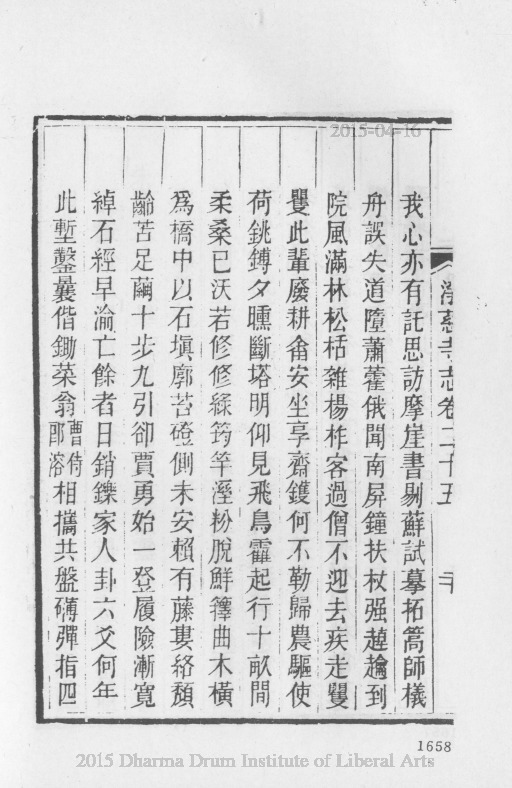 2015-04-16
淨慈寺志卷二十五
二十
我心亦有託思訪摩崖書剔蘚試摹拓篙師檥
舟誤失道墮蕭藿俄聞南屏鐘扶杖强趠趫到
院風滿林松栝雜楊柞客過僧不迎去疾走矍
矍此輩廢耕畬安坐享齋鑊何不勒歸農驅使
荷銚鎛夕曛斷塔明仰見飛鳥霍起行十畝間
柔桑已沃若修修綠筠竿溼粉脫鮮籜曲木橫
爲橋中以石塡廓苔磴側未安賴有藤蔞絡頹
齡苦足繭十步九引卻賈勇始一登履險漸寬
綽石經早淪亡餘者日銷鑠家人卦六爻何年
此塹鑿曩偕鋤菜翁曹侍郎溶相攜共盤礡彈指四
1658
2015 Dharma Drum Institute of Liberal Arts